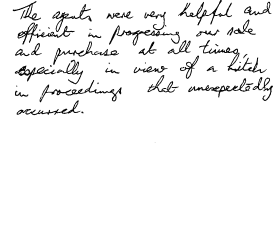 The agents were very helpful and
efficient in progressing our sale
and purchase at all times,
especially in view of a hitch
in proceedings that unexpectedly
occurred.